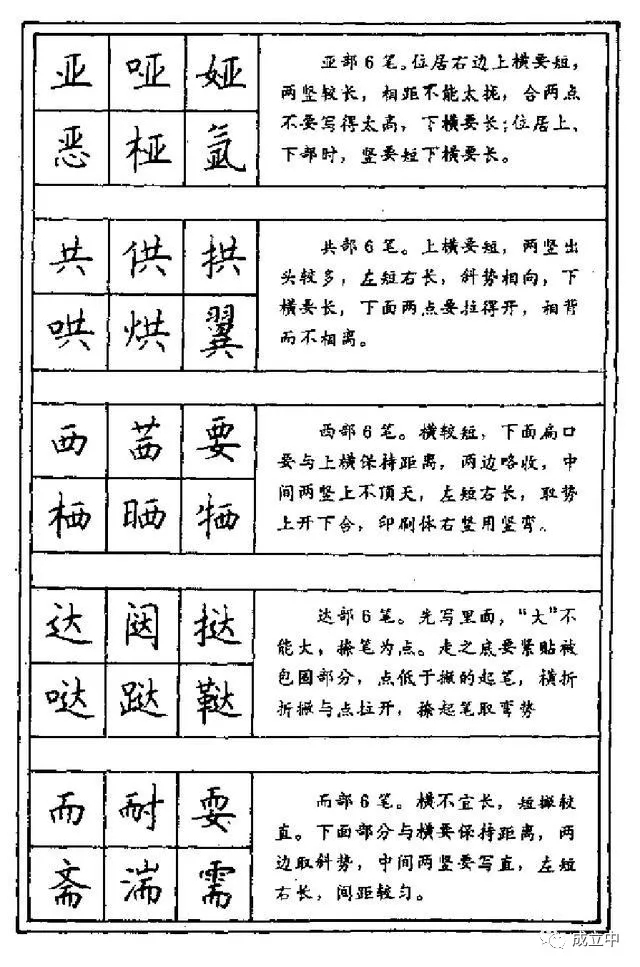 亚 哑 娅
恶 桠 氩
亚部6笔。位居右边上横要短，
两竖较长，相距不能太拢，合两点
不要写得太高，下横要长；位居上、
下部时，竖要短下横要长。
共 供 拱
哄 烘 翼
共部6笔。上横要短，两竖出
头较多，左短右长，斜势相向，下
横要长，下面两点要拉得开，相背
而不相离。
西 茜 要
栖 晒 牺
西部6笔。横较短，下面扁口
要与上横保持距离，两边略收，中
间两竖上不顶天，左短右长，取势
上开下合，印刷体右竖用竖弯。
达 闼 挞
哒 跶 鞑
达部6笔。先写里面，“大”不
能大，捺笔为点。走之底要紧贴被
包围部分，点低于撇的起笔，横折
折撇与点拉开，捺起笔取弯势
而 耐 耍
斋 湍 需
而部6笔。横不宜长，短撇较
直。下面部分与横要保持距离，两
边取斜势，中间两竖要写直，左短
右长，间距较匀。
成立中